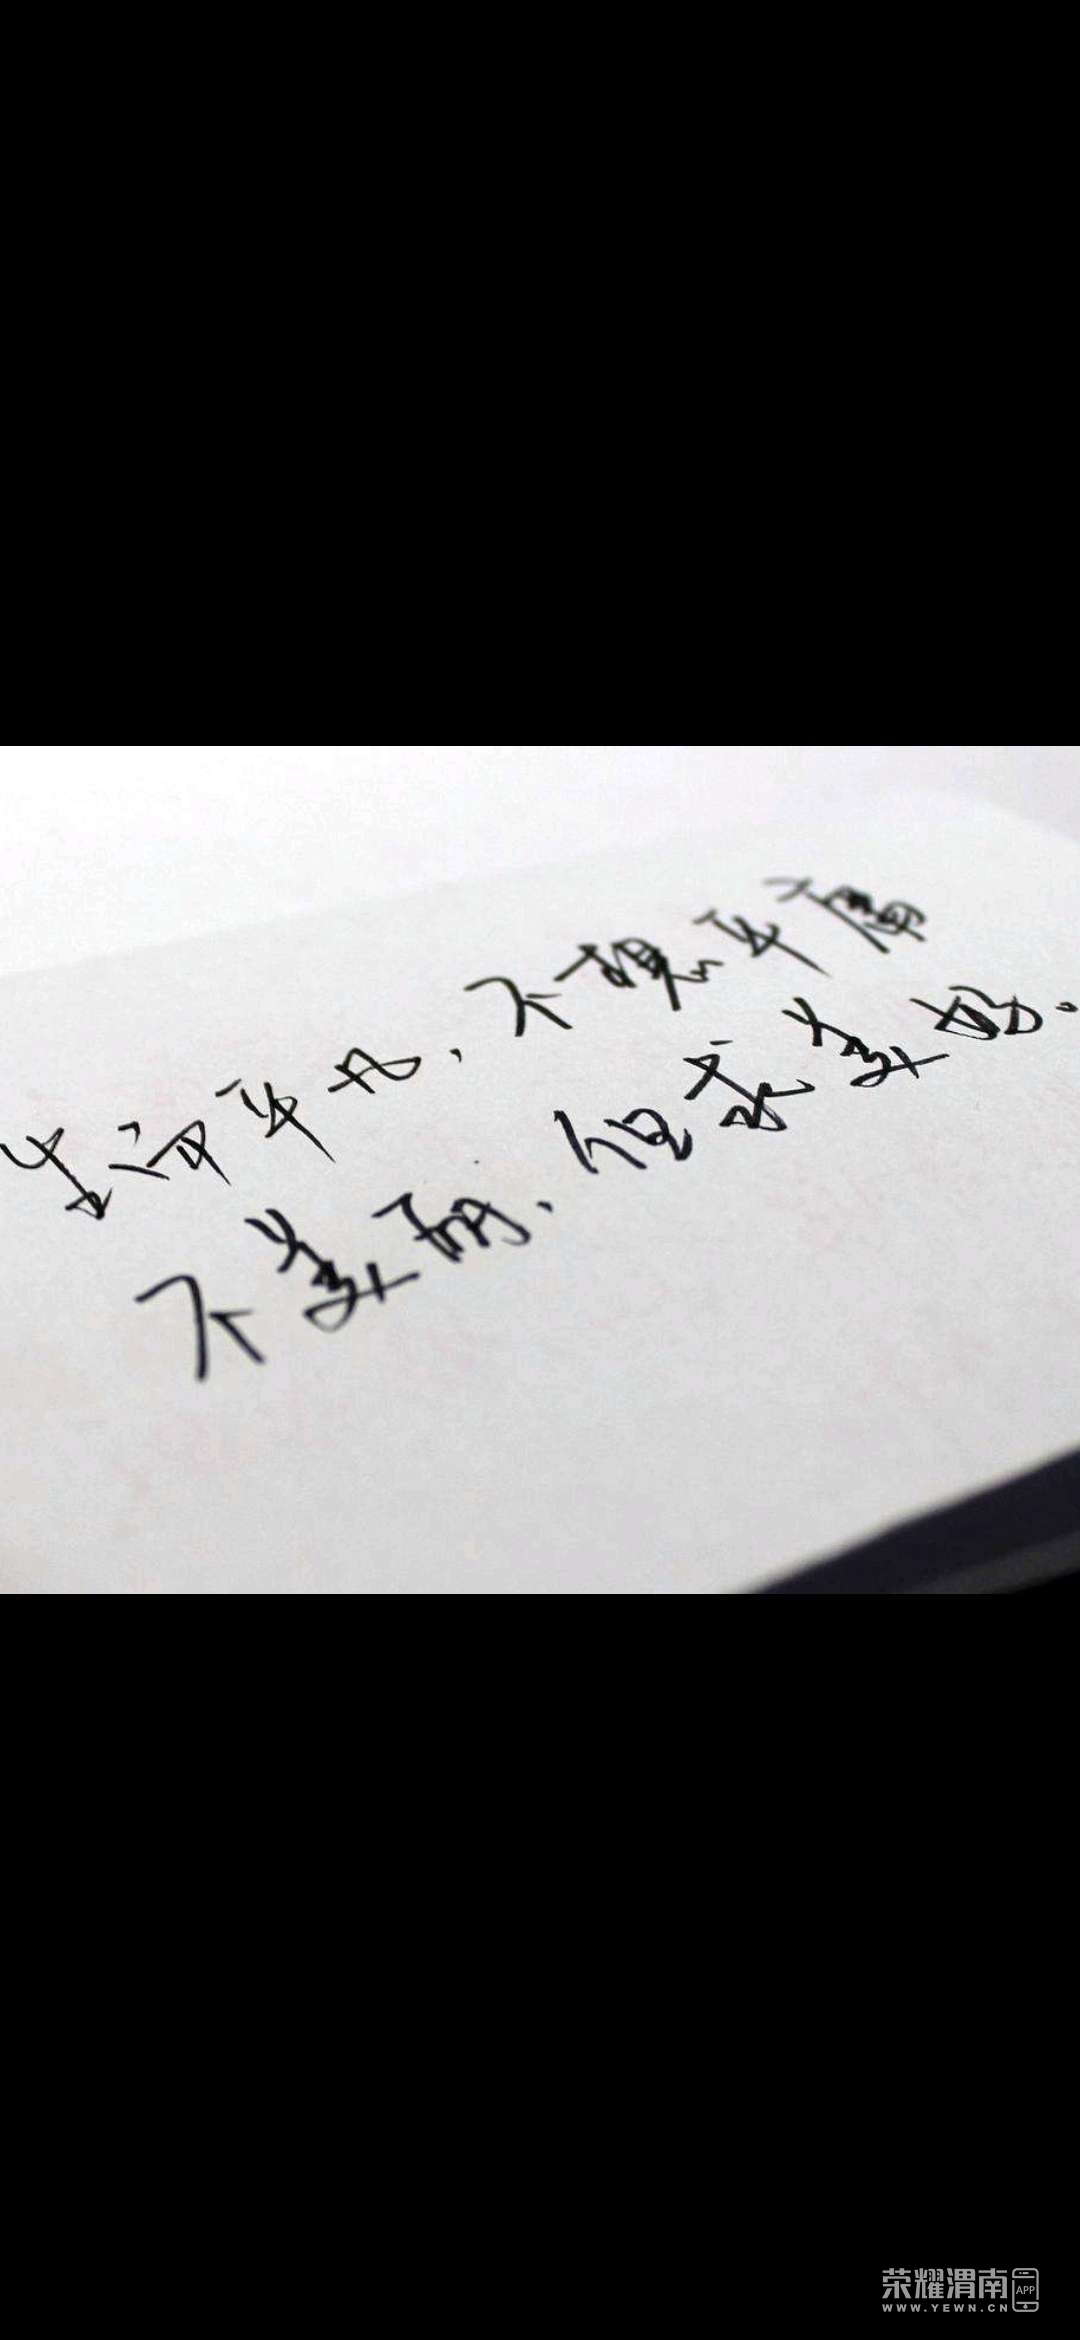 生活平凡，不想平庸
不美丽，但求美好.
荣耀渭南 APP
WWW.YEWN.CN